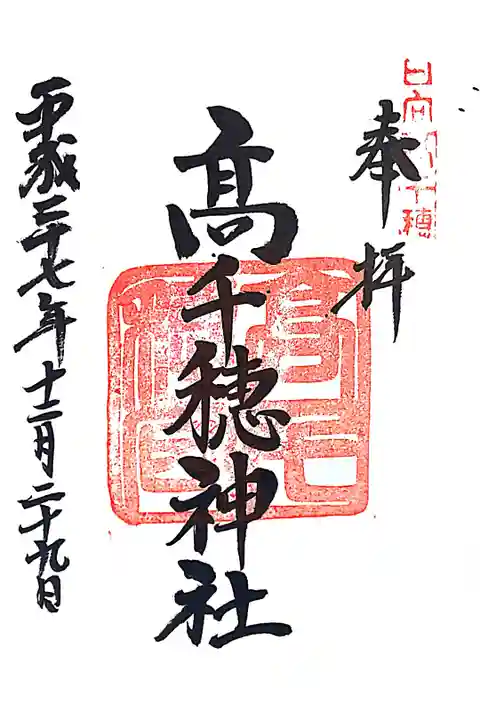 日向 高千穂
奉拝
高千穂神社
平成二十七年十二月二十九日